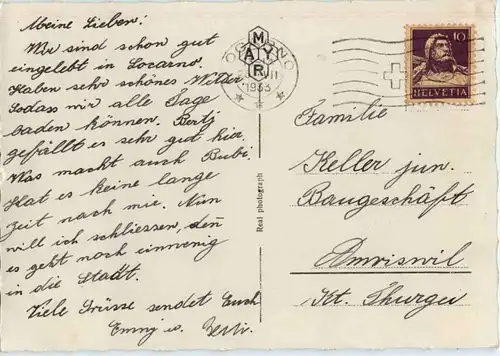 Meine Lieben!
Wir sind schon gut
eingelebt in Locarno.
Haben sehr schönes Wetter
sodass wir alle Tage
baden können. Berty
gefällt es sehr gut hier.
Was macht auch Bubi.
Hat es keine lange
Zeit nach mir. Nun
will ich schliessen, den̄
es geht noch einwenig
in die Stadt.
Viele Grüsse sendet Euch
Emmy u.
MAYR
1933
10
HELVETIA
Real photograph
Familie
Keller jun.
Baugeschäft
Amriswil
Kt. Thurgau